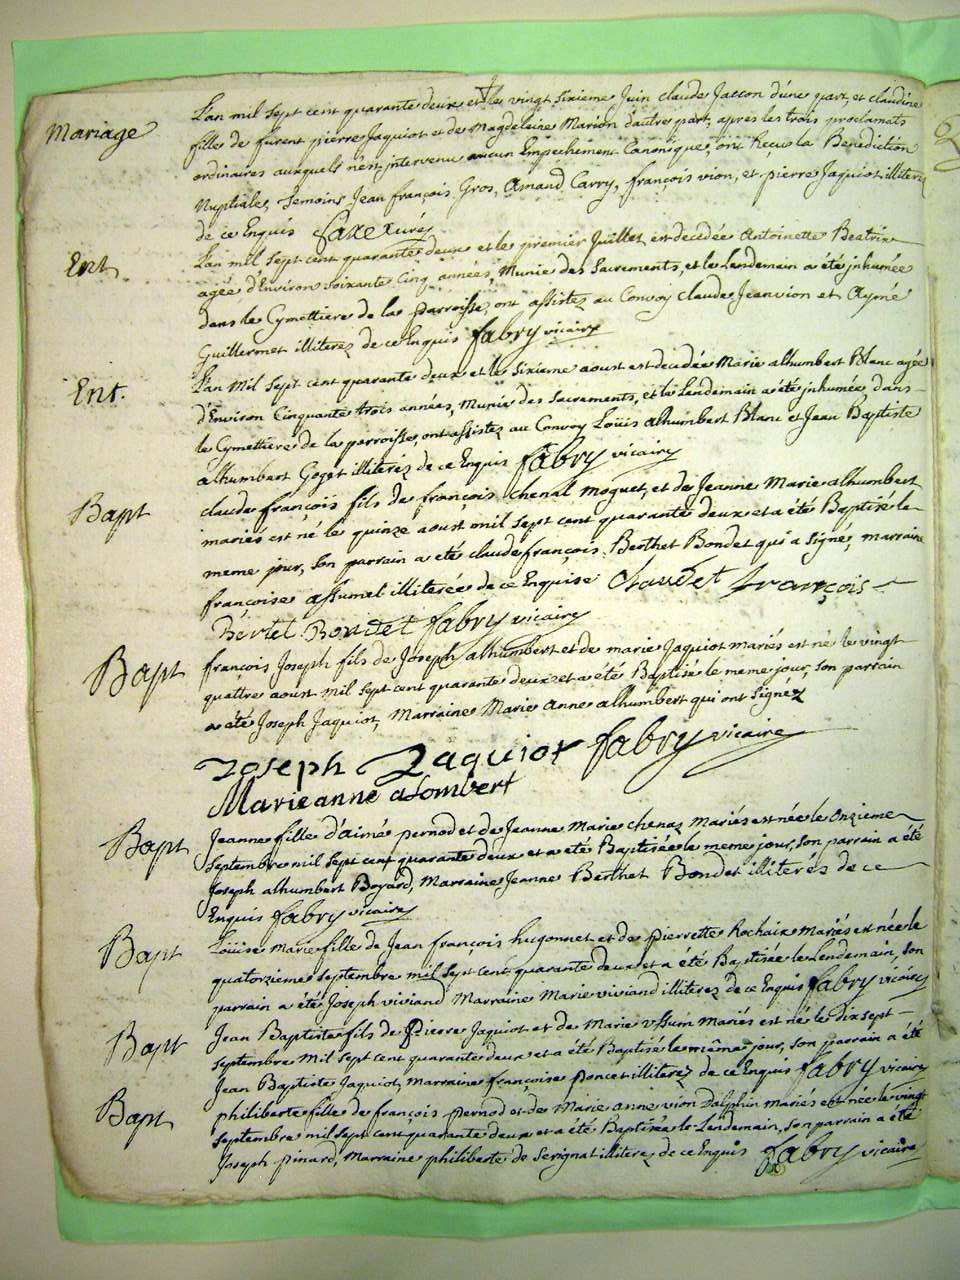 Mariage
L'an mil sept cent quarante deux et le vingt sixieme Juin claude Jaccon d'une part, et claudine
fille de furent pierre Jaquiot et de Magdeleine Marion d'autre part, apres les trois proclamats
ordinaires auxquels n'est intervenu aucun Empechement Canonique, ont Reçus la Benediction
Nuptiale, temoins Jean françois Gros, Amand Carry, françois vion, et pierre Jaquiot illiterez
de ce Enquis
Ent.
L'an mil sept cent quarante deux et le premier Juillet est decedée Antoinette Beatrix
agée d'Environ soixante Cinq années, Munie des Sacrements, et le Lendemain a été jnhumée
dans le Cymettiere de la parroisse, ont assistez au Convoy Claude Jeanvion et Aymé
Guillermet illiterez de ce Enquis fabry vicaire
Ent.
L'an Mil sept cent quarante deux et le sixieme aoust est decedée Marie alhumbert Blanc agée
d'Environ Cinquante trois années, Munie des Sacrements, et le Lendemain a été jnhumée dans
le Cymettiere de la parroisse, ont assistez au Convoy Loüis alhumbert Blanc et Jean Baptiste
alhumbert Goget illiterez de ce Enquis fabry vicaire
Bapt
claude françois fils de françois chenal moguet, et de Jeanne Marie alhumbert
mariés est né le quinze aoust mil sept cent quarante deux et a été Baptisé le
meme jour, Son parrain a été claude françois Berthet Bondet qui a Signé, marraine
françoise assumel illiterée de ce Enquise françois
Bertet Bondet fabry vicaire
Bapt
françois Joseph fils de Joseph alhumbert et de marie Jaquiot mariés est né le vingt
quattre aoust mil sept cent quarante deux et a été Baptisé le meme jour, Son parrain
a été Joseph Jaquiot, Marraine Marie Anne alhumbert qui ont Signez
Joseph Jaquiot fabry vicaire
Marie anne alombert
Bapt
Jeanne fille d'aimé pernod et de Jeanne Marie chenaz Mariés est née le Onzieme
Septembre mil sept cent quarante deux et a été Baptisée le meme jour, Son parrain a été
Joseph alhumbert Boyard, Marraine Jeanne Berthet Bondet illiterés de ce
Enquis fabry vicaire
Bapt
Loüise Marie fille de Jean françois hugonnet et de pierrette Rochaix Mariés est née le
quatorzieme septembre mil sept cent quarante deux et a été Baptisée le Lendemain, Son
parrain a été Joseph viviand Marraine Marie viviand illiterez de ce Enquis fabry vicaire
Bapt
Jean Baptiste fils de Pierre Jaquiot et de Marie ussum mariés est né le dix sept
septembre Mil sept cent quarante deux et a été Baptisé le même jour, Son parrain a été
Jean Baptiste Jaquiot, Marraine françoise poncet illiterez de ce Enquis fabry vicaire
Bapt
philiberte fille de françois pernod et de Marie anne vion Dalphin mariés est née le vingt
septembre mil sept cent quarante deux et a été Baptisée le Lendemain, Son parrain a été
Joseph pinard, Marraine philiberte de Serignat illiterez de ce Enquis fabry vicaire